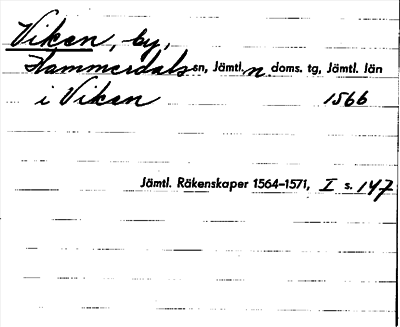 Viken, by,
Hammerdals en, Jämtl. n doms. tg, Jämtl. län
i Viken 1566
Jämtl. Räkenskaper 1564–1571, I s. 147